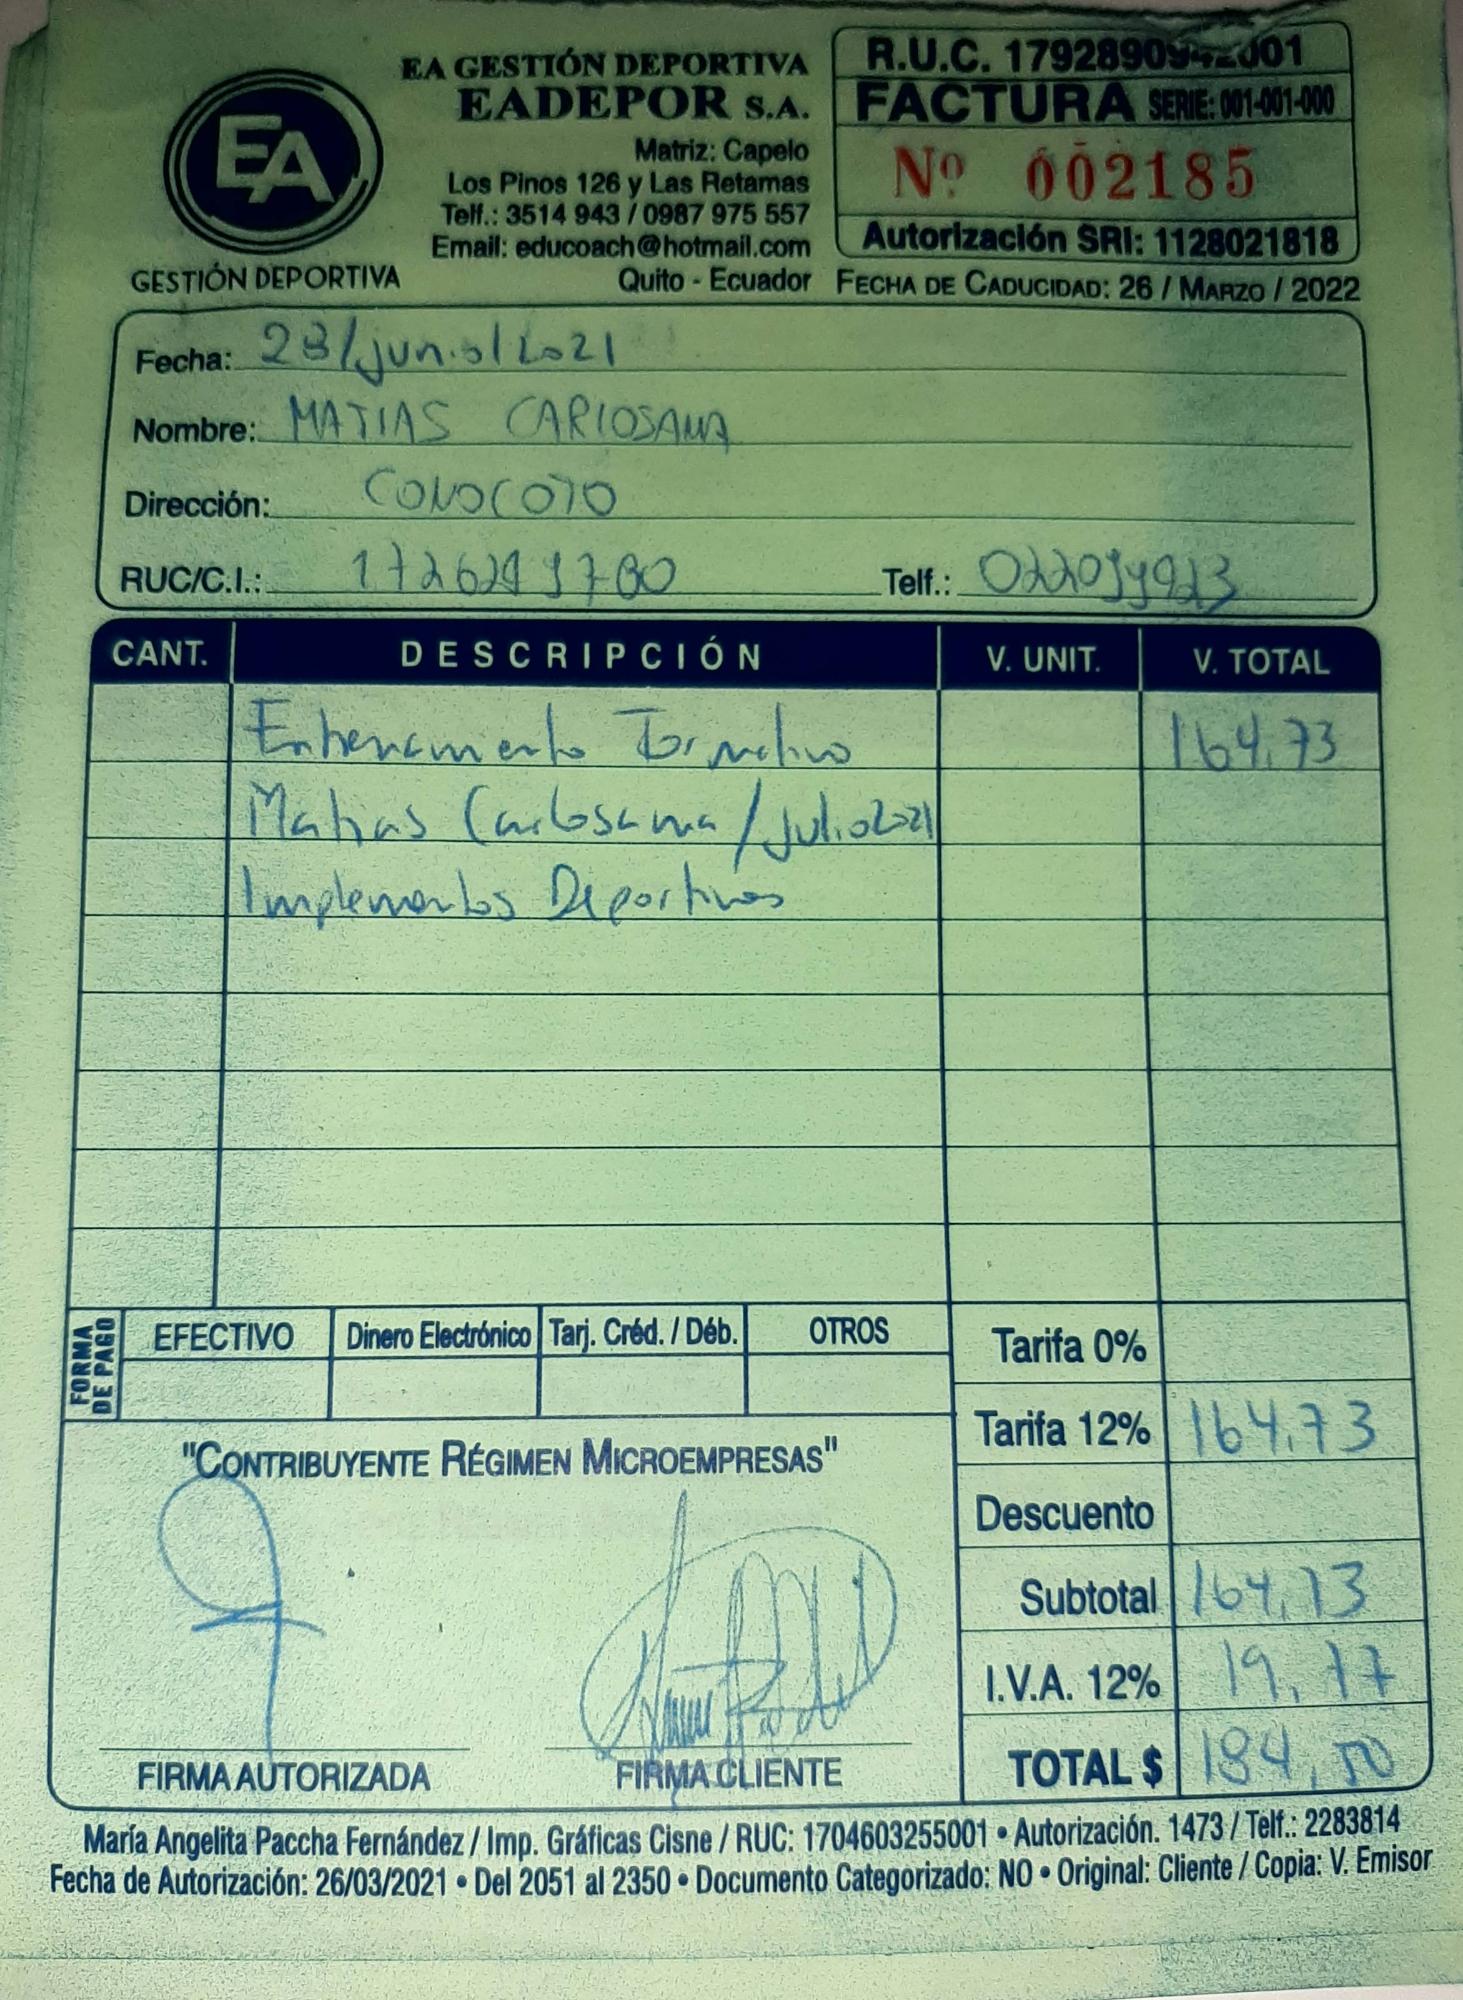 EA
GESTIÓN DEPORTIVA
EA GESTIÓN DEPORTIVA
EADEPOR S.A.
Matriz: Capelo
Los Pinos 126 y Las Retamas
Telf.: 3514 943 / 0987 975 557
Email: educoach@hotmail.com
Quito - Ecuador
R.U.C. 1792890942001
FACTURA SERIE: 001-001-000
Nº 002185
Autorización SRI: 1128021818
FECHA DE CADUCIDAD: 26 / MARZO / 2022
Fecha: 28/junio/2021
Nombre: MATIAS CARLOSAMA
Dirección: CONOCOTO
RUC/C.I.: Telf.:
CANT. DESCRIPCIÓN V. UNIT. V. TOTAL
Entrenamiento Formativo 164,73
Matias Carlosama / Julio 2021
Implementos Deportivos
FORMA DE PAGO
EFECTIVO Dinero Electrónico Tarj. Créd. / Déb. OTROS
Tarifa 0%
Tarifa 12% 164,73
Descuento
Subtotal 164,73
I.V.A. 12% 19,77
TOTAL $ 184,50
"CONTRIBUYENTE RÉGIMEN MICROEMPRESAS"
FIRMA AUTORIZADA FIRMA CLIENTE
María Angelita Paccha Fernández / Imp. Gráficas Cisne / RUC: 1704603255001 • Autorización. 1473 / Telf.: 2283814
Fecha de Autorización: 26/03/2021 • Del 2051 al 2350 • Documento Categorizado: NO • Original: Cliente / Copia: V. Emisor